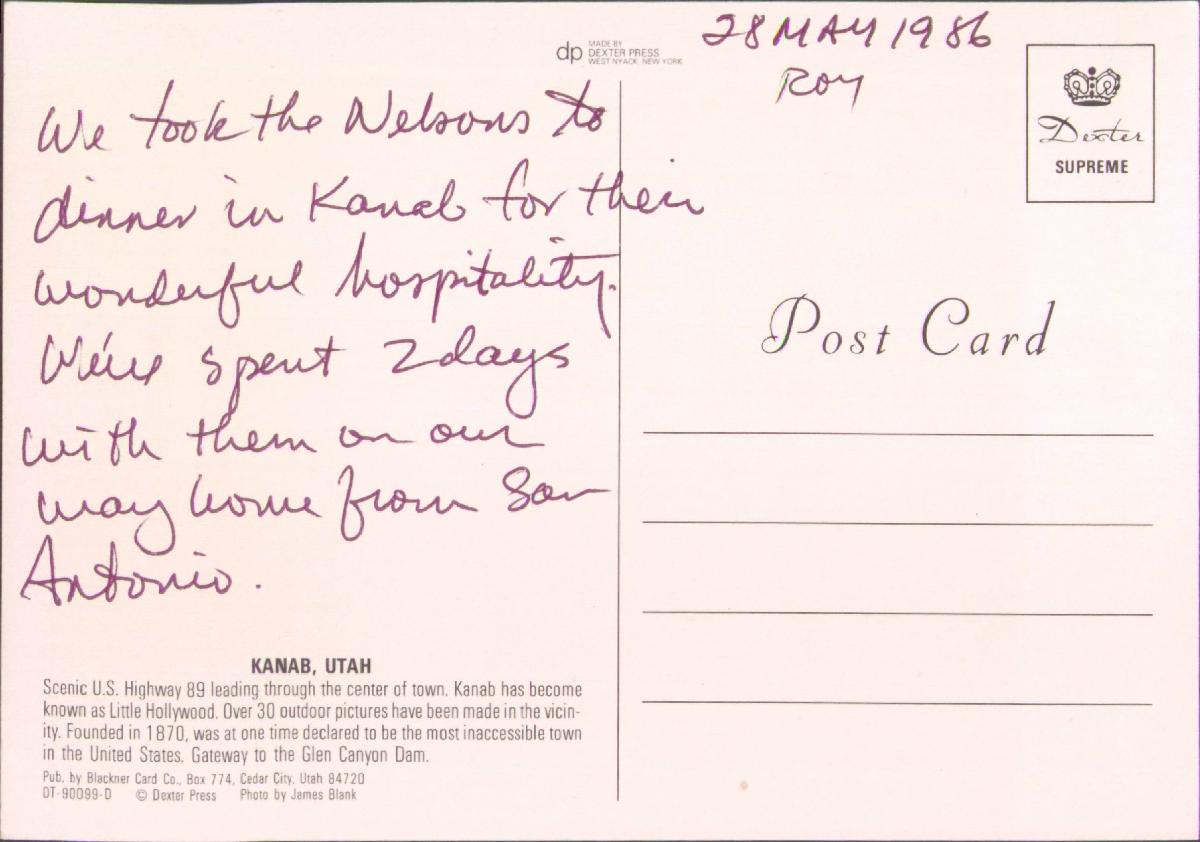 28 MAY 1986
Roy
dp MADE BY
DEXTER PRESS
WEST NYACK, NEW YORK
We took the Nelsons to
dinner in Kanab for their
wonderful hospitality.
We've spent 2 days
with them on our
way home from San
Antonio.
KANAB, UTAH
Scenic U.S. Highway 89 leading through the center of town. Kanab has become
known as Little Hollywood. Over 30 outdoor pictures have been made in the vicin-
ity. Founded in 1870, was at one time declared to be the most inaccessible town
in the United States. Gateway to the Glen Canyon Dam.
Pub. by Blackner Card Co., Box 774, Cedar City, Utah 84720
DT-90099-D © Dexter Press Photo by James Blank
Dexter
SUPREME
Post Card